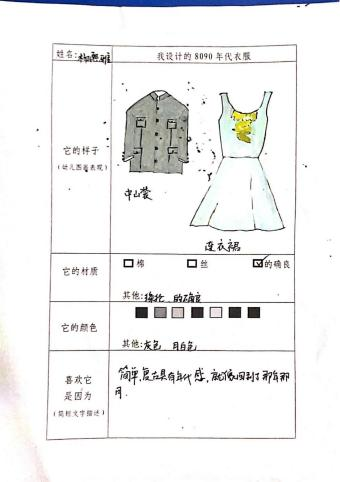 姓名:
我设计的8090年代衣服
它的样子
(幼儿图画表现)
中山装
连衣裙
它的材质
棉
丝
的确良
其他:涤纶 的确良
它的颜色
其他:灰色 月白色
喜欢它
是因为
(简短文字描述)
简单,复古具有年代感,就像回到了那年那
月.